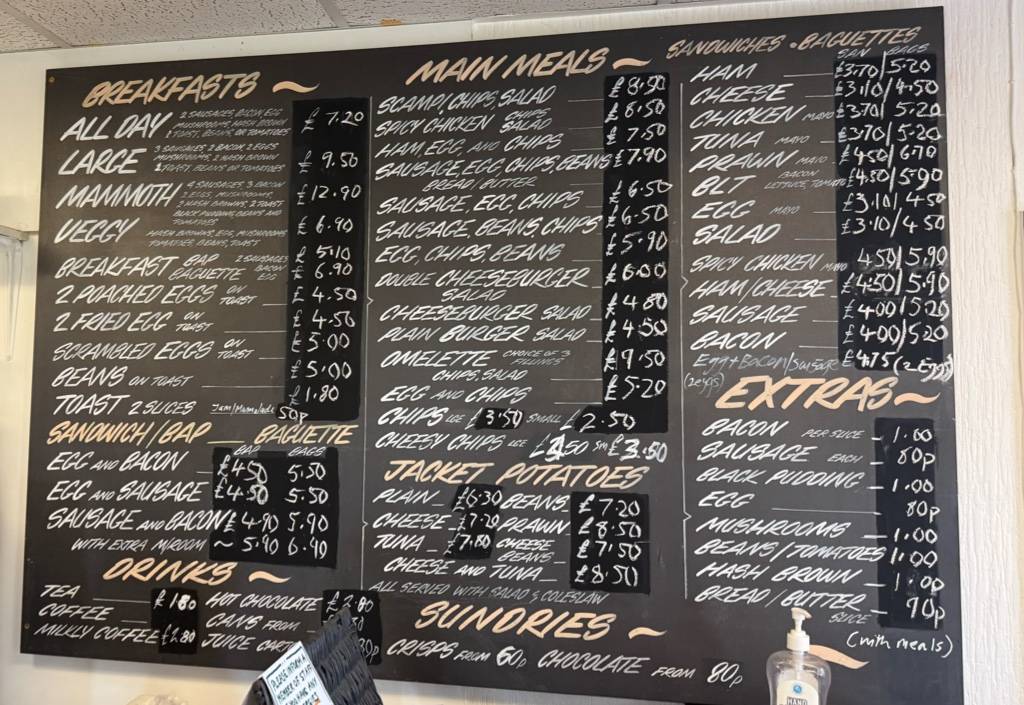 BREAKFASTS ~
ALL DAY 2 SAUSAGES, BACON, EGG £ 7.20
MUSHROOMS, HASH BROWN
1 TOAST, BEANS OR TOMATOES
LARGE 3 SAUSAGES 2 BACON 2 EGGS £ 9.50
MUSHROOMS, 2 HASH BROWN
2 TOAST BEANS OR TOMATOES
MAMMOTH 4 SAUSAGES 3 BACON £12.90
2 EGGS, MUSHROOMS,
2 HASH BROWNS, 2 TOAST
BLACK PUDDING, BEANS AND
TOMATOES
VEGGY HASH BROWNS, EGG, MUSHROOMS £ 6.90
TOMATOES, BEANS, TOAST
BREAKFAST BAP 2 SAUSAGES £ 5.10
BAGUETTE BACON EGG £ 6.90
2 POACHED EGGS ON TOAST £ 4.50
2 FRIED EGG ON TOAST £ 4.50
SCRAMBLED EGGS ON TOAST £ 5.00
BEANS ON TOAST £ 5.00
TOAST 2 SLICES £ 1.80
Jam/Marmalade 50p
SANDWICH/BAP BAGUETTE
EGG AND BACON £4.50 5.50
EGG AND SAUSAGE £4.50 5.50
SAUSAGE AND BACON £4.90 5.90
WITH EXTRA M/ROOM ~ 5.40 6.40
DRINKS ~
TEA £ 1.80 HOT CHOCOLATE £ 2.80
COFFEE CANS FROM
MILKY COFFEE £2.80 JUICE
MAIN MEALS ~
SCAMPI, CHIPS, SALAD £ 8.50
SPICY CHICKEN CHIPS SALAD £ 8.50
HAM, EGG, AND CHIPS £ 7.50
SAUSAGE, EGG, CHIPS, BEANS £7.90
BREAD/BUTTER
SAUSAGE, EGG, CHIPS £ 6.50
SAUSAGE, BEANS CHIPS £ 6.50
EGG, CHIPS, BEANS £ 5.90
DOUBLE CHEESEBURGER £6.00
SALAD
CHEESEBURGER SALAD £ 4.80
PLAIN BURGER SALAD £ 4.50
OMELETTE CHOICE OF 3 FILLINGS £ 9.50
CHIPS, SALAD
EGG AND CHIPS £ 5.20
CHIPS LGE £3.50 SMALL £ 2.50
CHEESY CHIPS LGE SM £ 3.50
JACKET POTATOES
PLAIN £6.30 BEANS £ 7.20
CHEESE £7.20 PRAWN £ 8.50
TUNA £7.80 CHEESE BEANS £ 7.50
CHEESE AND TUNA £8.50
ALL SERVED WITH SALAD & COLESLAW
SUNDRIES ~
CRISPS FROM 60p CHOCOLATE FROM 80p
SANDWICHES • BAGUETTES
SAN BAGS
HAM £3.70/5.20
CHEESE £3.10/4.50
CHICKEN MAYO £3.70/5.20
TUNA MAYO £3.70/5.20
PRAWN MAYO £4.50/6.70
BLT BACON LETTUCE, TOMATO £4.50/5.90
EGG MAYO £3.10/4.50
SALAD £3.10/4.50
SPICY CHICKEN MAYO 4.50/5.90
HAM/CHEESE £4.50/5.90
SAUSAGE £4.00/5.20
BACON £4.00/5.20
Egg+Bacon/Sausage £4.75 (2 Eggs)
(2eggs)
EXTRAS ~
BACON PER SLICE 1.00
SAUSAGE EACH 80p
BLACK PUDDING 1.00
EGG 80p
MUSHROOMS 1.00
BEANS/TOMATOES 1.00
HASH BROWN 1.00
BREAD/BUTTER SLICE 90p
(with meals)
PLEASE INFORM A
MEMBER OF STAFF
HAND